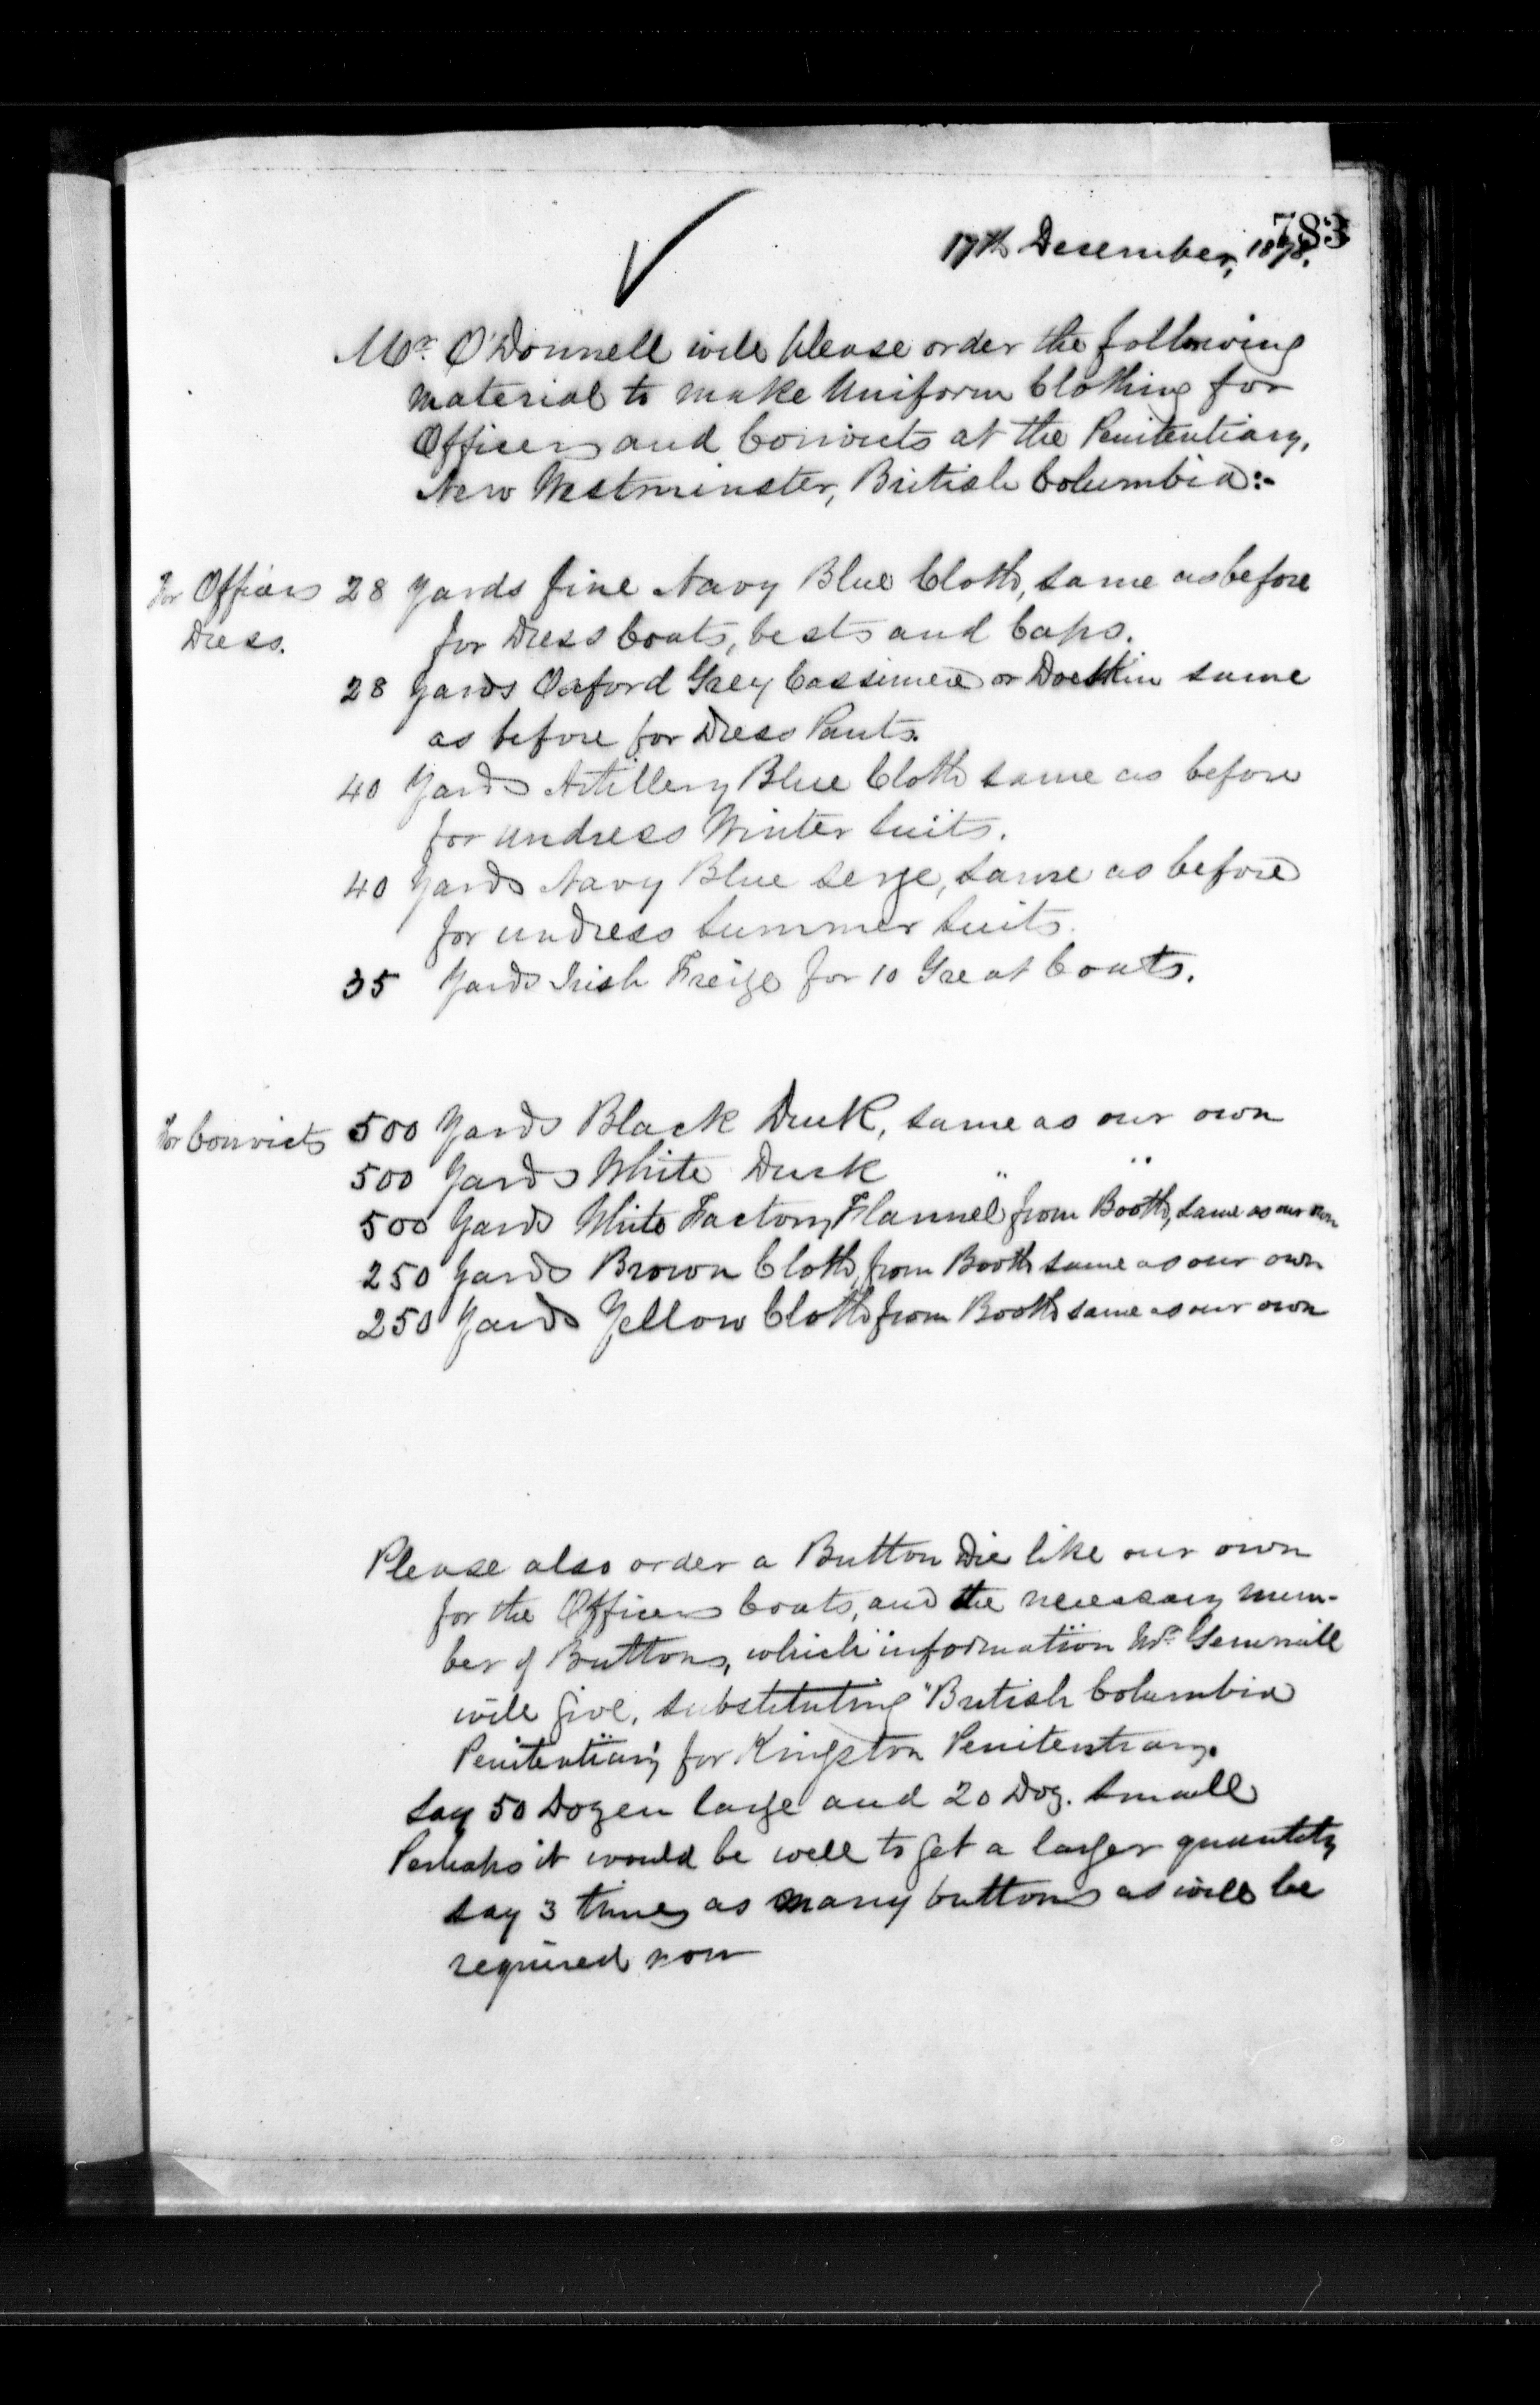 783
17th December, 1878.
Mr. O'Donnell will please order the following
material to make Uniform Clothing for
Officers and Convicts at the Penitentiary,
New Westminster, British Columbia:-
For Officers 28 Yards fine Navy Blue Cloth, same as before
Dress. for Dress Coats, Vests and Caps.
28 Yards Oxford Grey Cassimere or Doeskin same
as before for Dress Pants.
40 Yards Artillery Blue Cloth same as before
for undress Winter Suits.
40 Yards Navy Blue Serge, same as before
for undress Summer Suits.
35 Yards Irish Freize for 10 Great Coats.
For Convicts 500 Yards Black Duck, same as our own
500 Yards White Duck " "
500 Yards White Factory Flannel from Booth, same as our own
250 Yards Brown Cloth, from Booth same as our own
250 Yards Yellow Cloth from Booth same as our own
Please also order a Button Die like our own
for the Officers Coats, and the necessary num-
ber of Buttons, which information Mr. Gemmill
will give, substituting "British Columbia
Penitentiary" for Kingston Penitentiary.
Say 50 Dozen large and 20 Doz. Small
Perhaps it would be well to get a larger quantity
say 3 times as many buttons as will be
required now